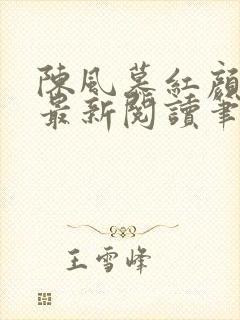 陳風慕紅顏
最新閱讀筆
王雪峰